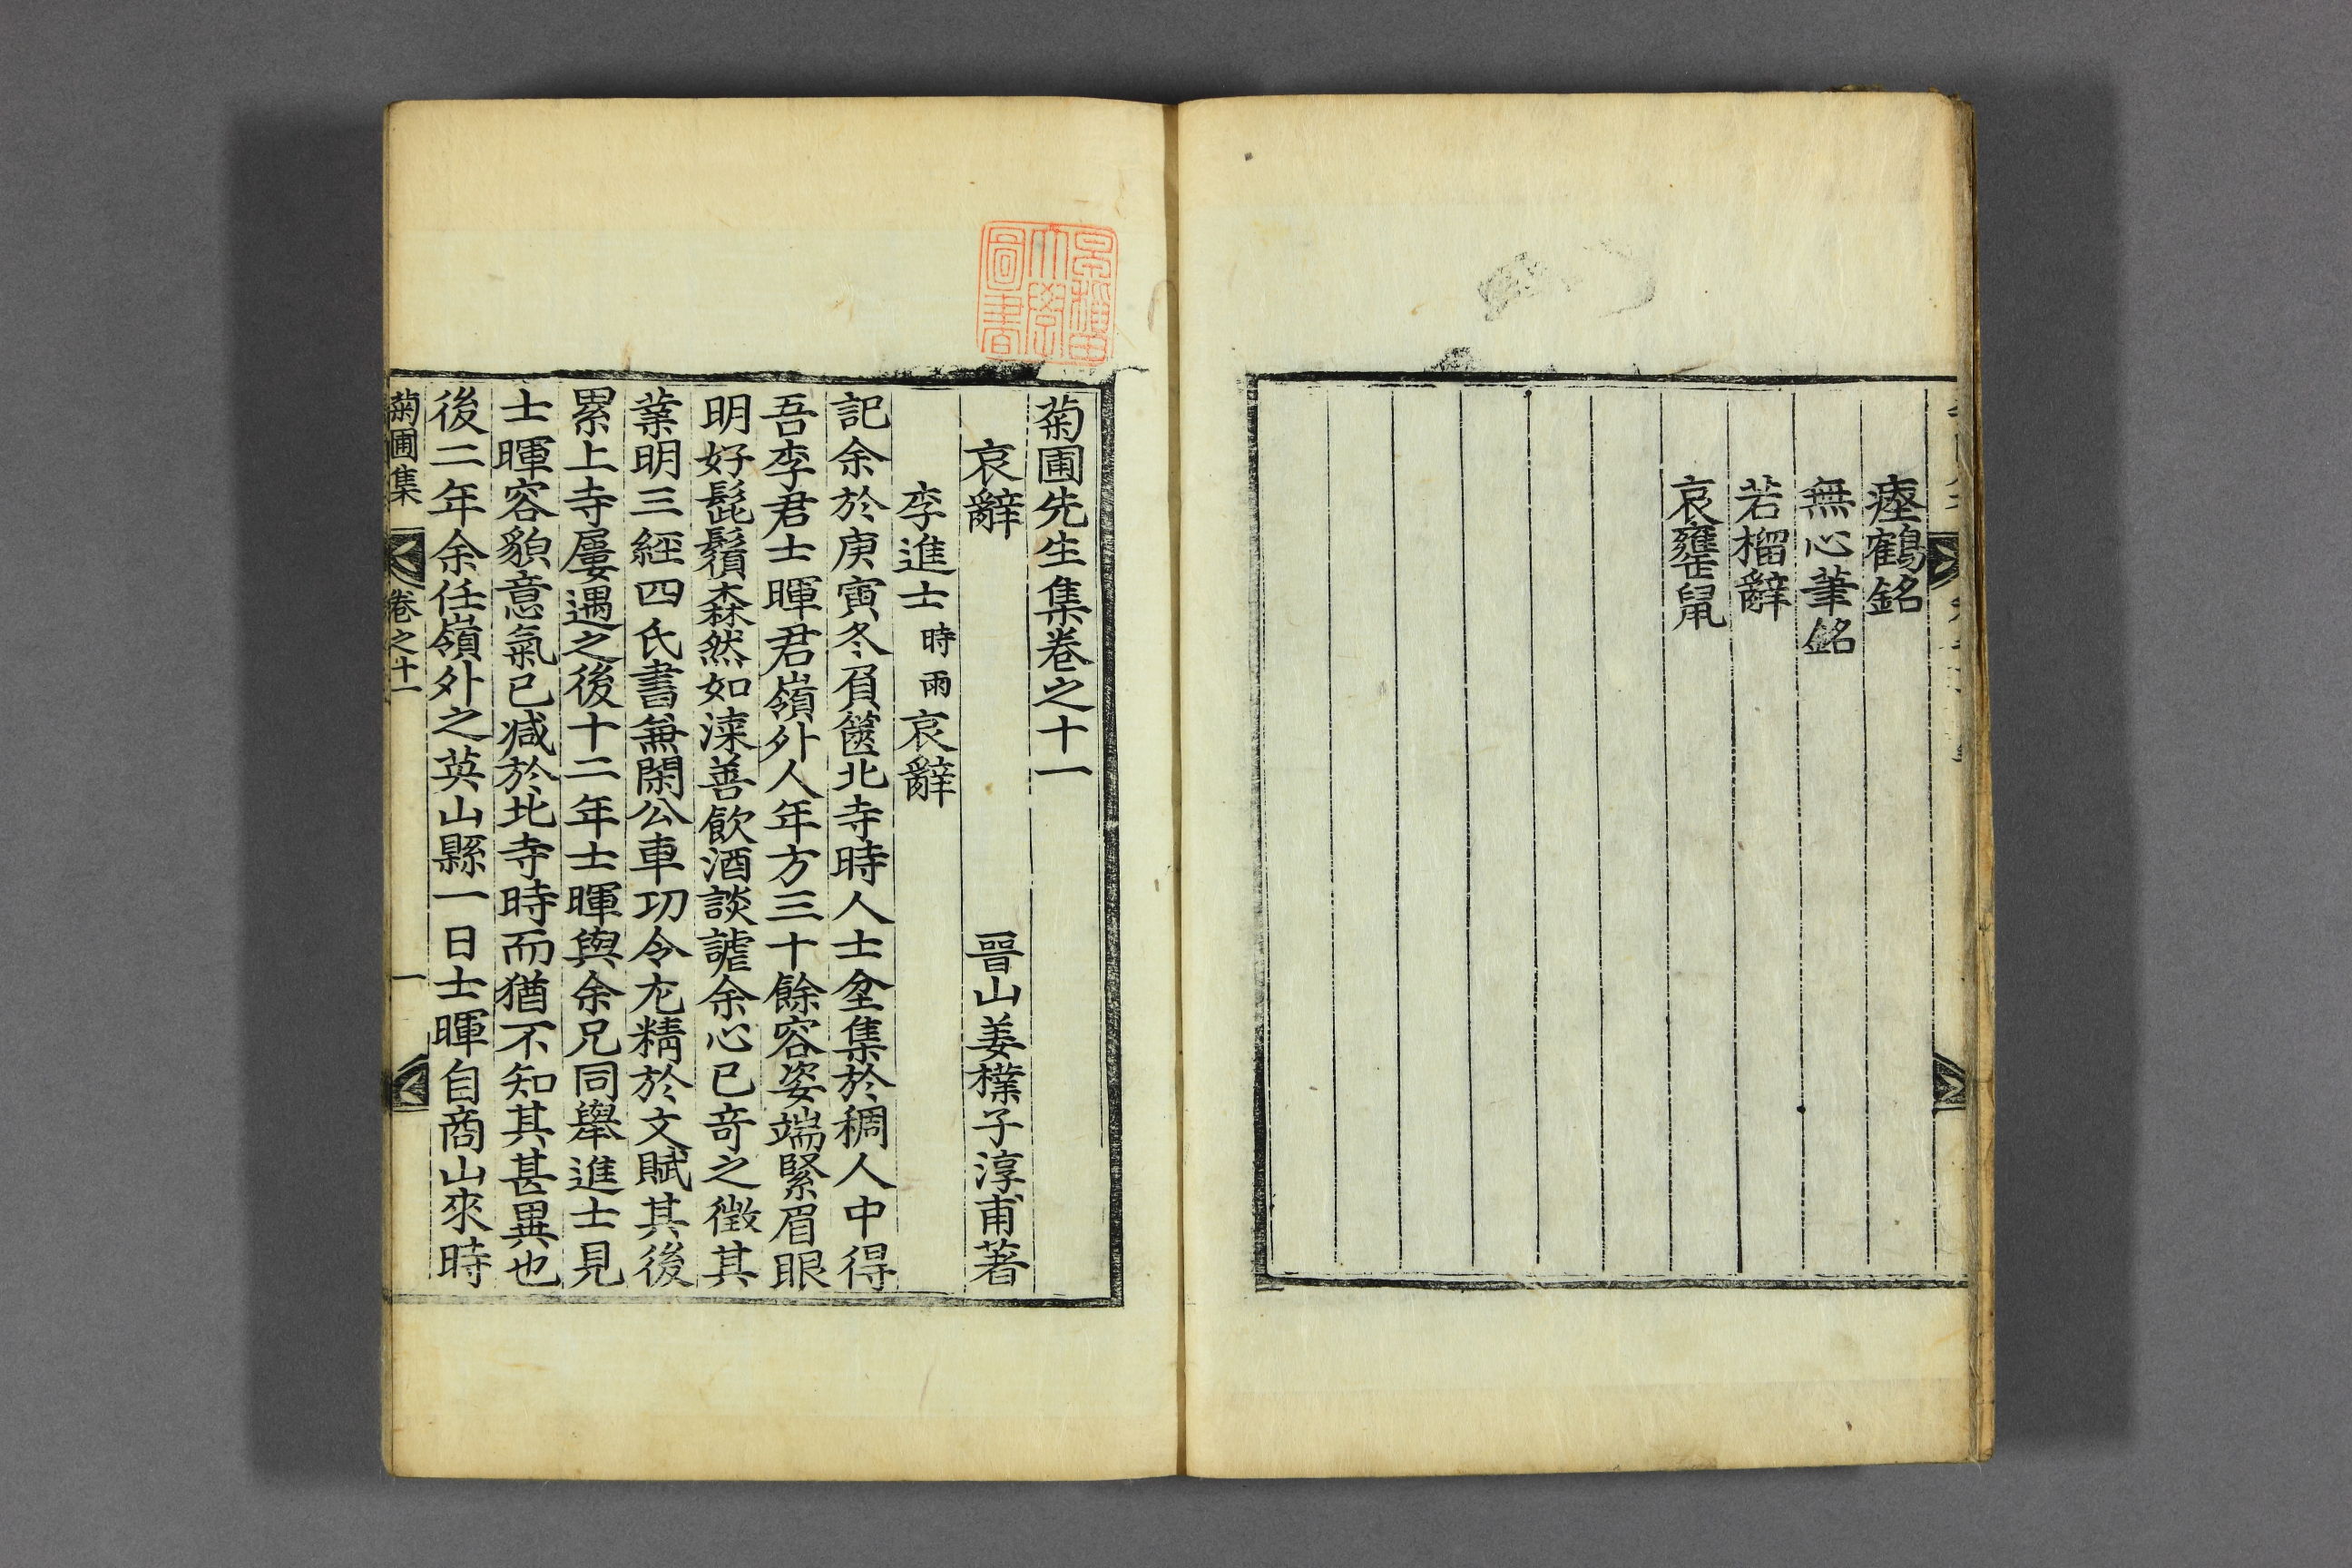 瘞鶴銘
無心筆銘
若榴辭
哀壅𤯝鼠
菊圃先生集卷之十一
哀辭 晉山姜樸子淳甫著
李進士時雨哀辭
記余於庚寅冬負篋北寺時人士坌集於稠人中得
吾李君士暉君嶺外人年方三十餘容姿端緊眉眼
明好髭鬚森然如漆善飮酒談謔余心已竒之徵其
業明三經四氏書兼閑公車功令尤精於文賦其後
累上寺屢遇之後十二年士暉與余兄同擧進士見
士暉容貌意氣已减於北寺時而猶不知其甚異也
後二年余任嶺外之英山縣一日士暉自商山來時
菊圃集 卷之十一 一
早稻田大學圖書